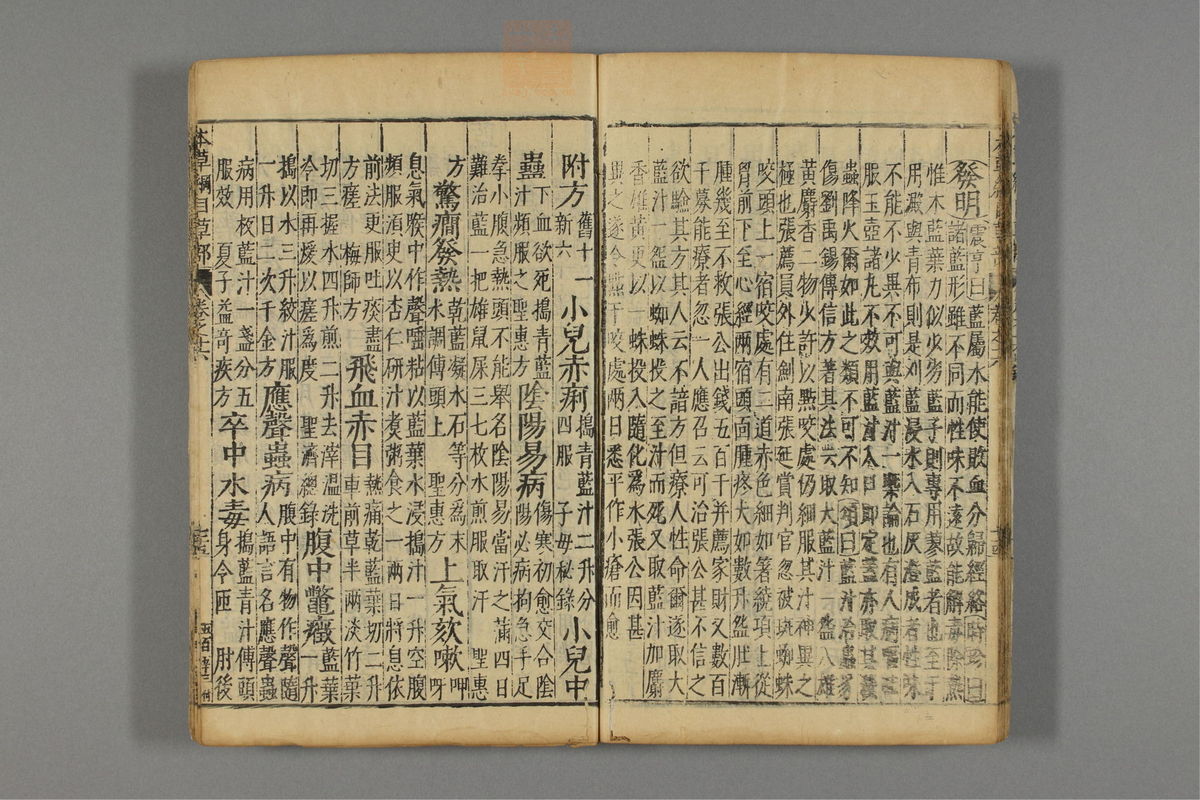 發明震亨曰藍屬水能使敗血分歸經絡時珍曰
諸藍形雖不同而性味不遠故能解毒除熱
惟木藍葉力似少劣藍子則專用蓼藍者也至于
用澱與青布則是刈藍浸水入石灰澄成者性味
不能不少異不可與藍汁一槩論也有人病嘔吐
服玉壺諸丸不效用藍汁入口即定蓋亦取其殺
蟲降火爾如此之類不可不知頌曰藍汁治蟲豸
傷劉禹錫傳信方著其法云取大藍汁一盌入雄
黃麝香二物少許以點咬處仍細服其汁神異之
極也張薦員外住劍南張延賞判官忽被斑蜘蛛
咬頭上一宿咬處有二道赤色細如箸繞項上從
胷前下至心經兩宿頭面腫疼大如數升盌肚漸
腫幾至不救張公出錢五百千并薦家財又數百
千募能療者忽一人應召云可治張公甚不信之
欲驗其方其人云不諳方但療人性命爾遂取大
藍汁一盌以蜘蛛投之至汁而死又取藍汁加麝
香雄黃更以一蛛投入隨化爲水張公因甚
異之遂令點于咬處兩日悉平作小瘡而愈
附方舊十一新六 小兒赤痢搗青藍汁二升分四服 子母秘錄 小兒中
蠱下血欲死搗青藍汁頻服之聖惠方 陰陽易病傷寒初愈交合陰陽必病拘急手足
拳小腹急熱頭不能舉名陰陽易當汗之滿四日難治藍一把雄鼠屎三七枚水煎服取汗 聖惠
方 驚癇發熱乾藍凝水石等分爲末水調傅頭上 聖惠方 上氣欬嗽呷呀
息氣喉中作聲唾粘以藍葉水浸搗汁一升空腹頻服須臾以杏仁研汁煑粥食之一兩日將息依
前法更服吐痰盡方瘥 梅師方 飛血赤目熱痛乾藍葉切二升車前草半兩淡竹葉
切三握水四升煎二升去滓溫洗冷即再煖以瘥爲度 聖濟總錄 腹中鼈癥藍葉一斤
搗以水三升絞汁服一升日二次千金方 應聲蟲病腹中有物作聲隨人語言名應聲蟲
病用板藍汁一盞分五服效 夏子益奇疾方 卒中水毒搗藍青汁傅頭身令匝 肘後
本草綱目草部 卷之十六